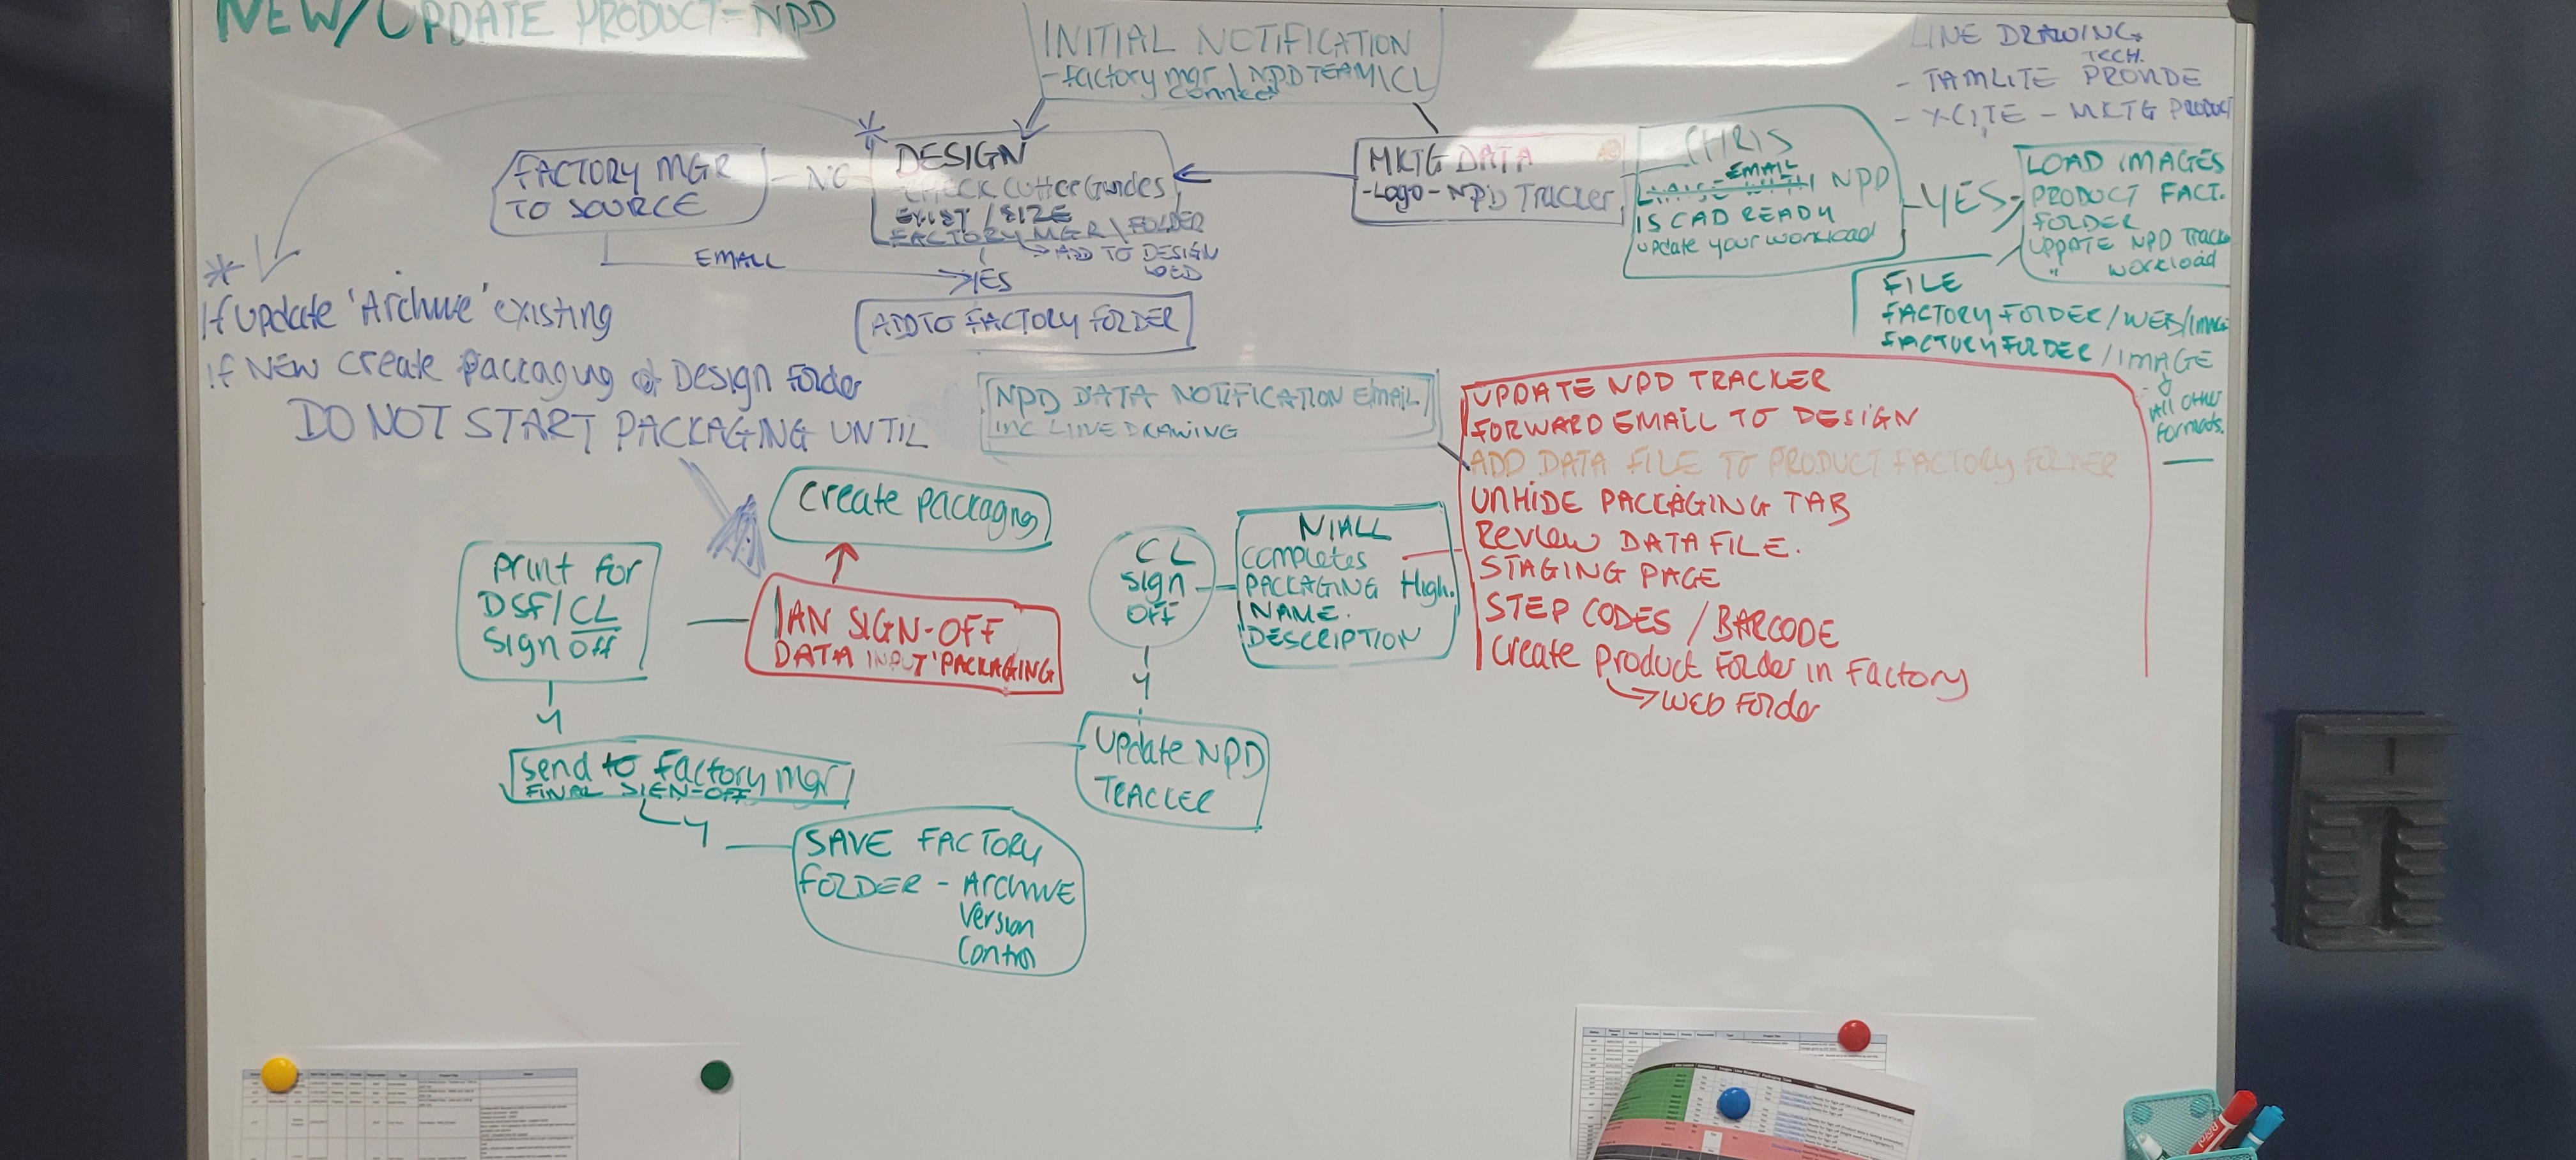 NEW/UPDATE PRODUCT - NPD
INITIAL NOTIFICATION
- factory mgr / NPD TEAM / CL
connect
LINE DRAWING
TECH.
- TAMLITE PROVIDE
- XCITE - MKTG PRODUCT
FACTORY MGR
TO SOURCE
NO
DESIGN
CHECK Cutter Guides
EXIST / SIZE
FACTORY MGR \ FOLDER
→ ADD TO DESIGN
EMAIL
YES
ADD TO FACTORY FOLDER
MKTG DATA
- Logo - NPD Tracker
CHRIS
EMAIL
NPD
IS CAD READY
update your workload
YES
LOAD IMAGES
PRODUCT FACT.
FOLDER
UPDATE NPD Track
" workload
FILE
FACTORY FOLDER / WEB / IMAGE
FACTORY FOLDER / IMAGE
All other
formats.
*
If update 'Archive' existing
If NEW create packaging Design Folder
DO NOT START PACKAGING UNTIL
NPD DATA NOTIFICATION EMAIL
INC LINE DRAWING
UPDATE NPD TRACKER
FORWARD EMAIL TO DESIGN
ADD DATA FILE TO PRODUCT FACTORY FOLDER
UNHIDE PACKAGING TAB
Review DATA FILE.
STAGING PAGE
STEP CODES / BARCODE
Create product Folder in Factory
→ WEB Folder
create packaging
IAN SIGN-OFF
DATA INPUT PACKAGING
print for
DSF/CL
sign off
Y
send to factory mgr
FINAL SIGN-OFF
Y
SAVE FACTORY
FOLDER - Archive
Version
Control
CL
sign
off
Y
update NPD
TRACKER
NIALL
completes
PACKAGING High.
NAME.
DESCRIPTION